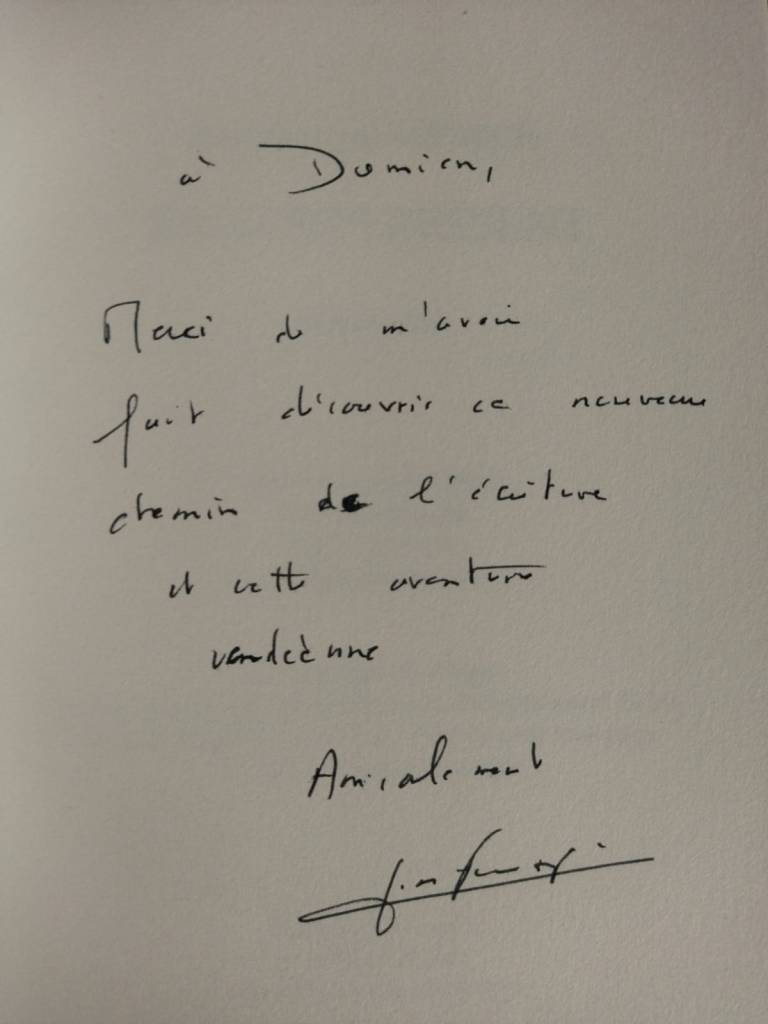 à Damien,
Merci de m'avoir
fait découvrir ce nouveau
chemin de l'écriture
et cette aventure
vendéenne
Amicalement